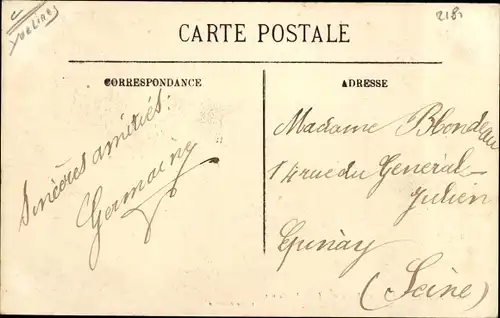 Yvelines
2185
CARTE POSTALE
CORRESPONDANCE
ADRESSE
Sincères amitiés:
Germaine
Madame Blondeau
14 rue du General
Julien
Epinay
(Seine)